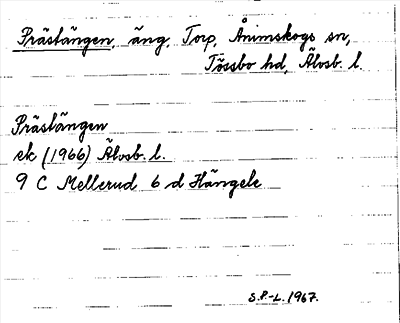 Prästängen, äng, Torp, Ånimskogs sn,
Tössbo hd, Älvsb. l.
Prästängen
ek (1966) Älvsb. l.
9 C Mellerud 6 d Hängele
S.P.-L. 1967.